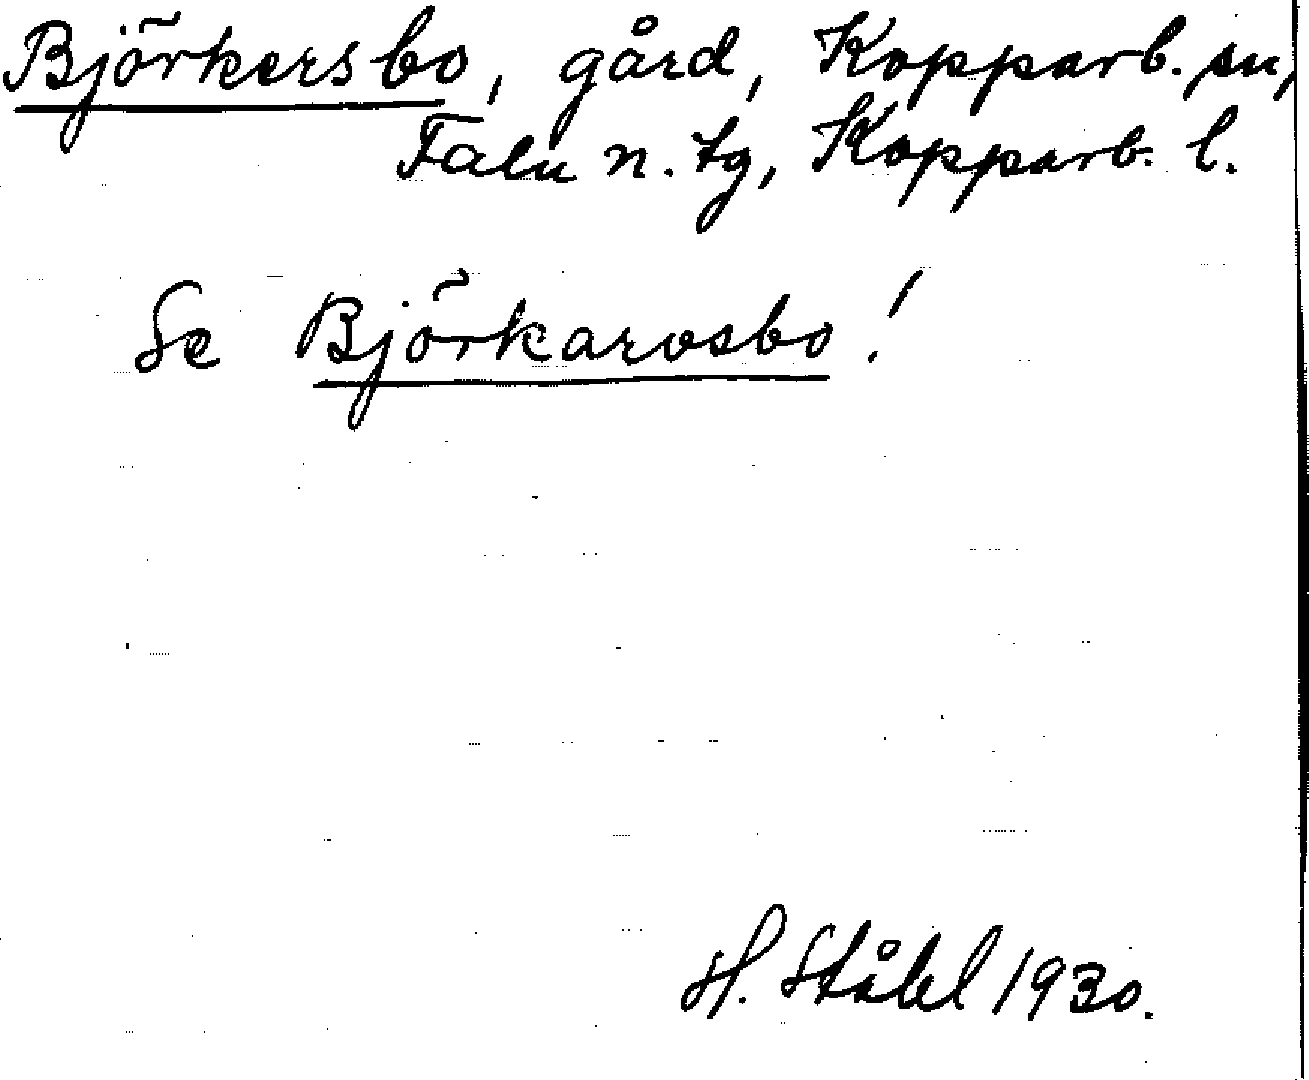 Björkersbo, gård, Kopparb. sn,
Falu n. tg, Kopparb. l.
Se Björkarosbo!
H. Ståhl 1930.